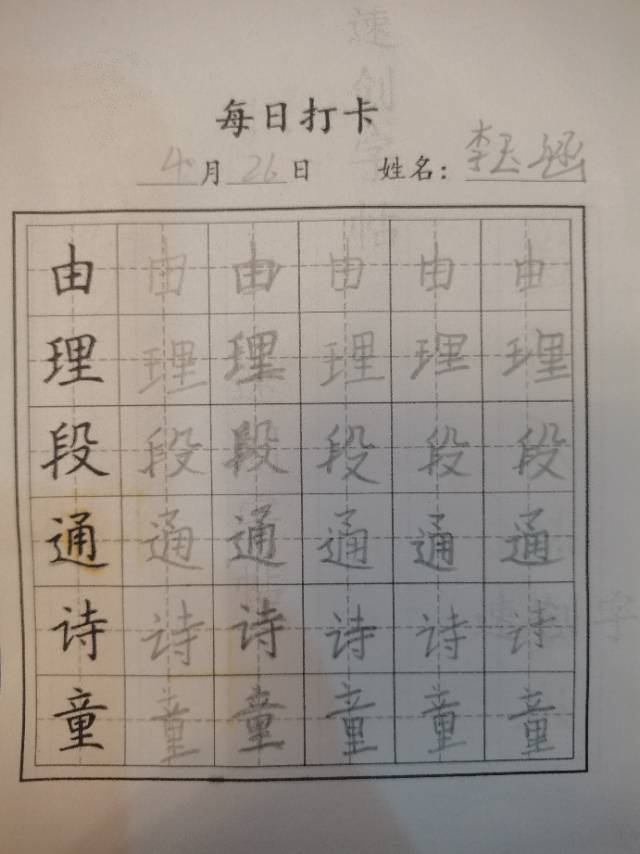 每日打卡
4月26日 姓名：李玉涵
由由由由由由
理理理理理理
段段段段段段
通通通通通通
诗诗诗诗诗诗
童童童童童童